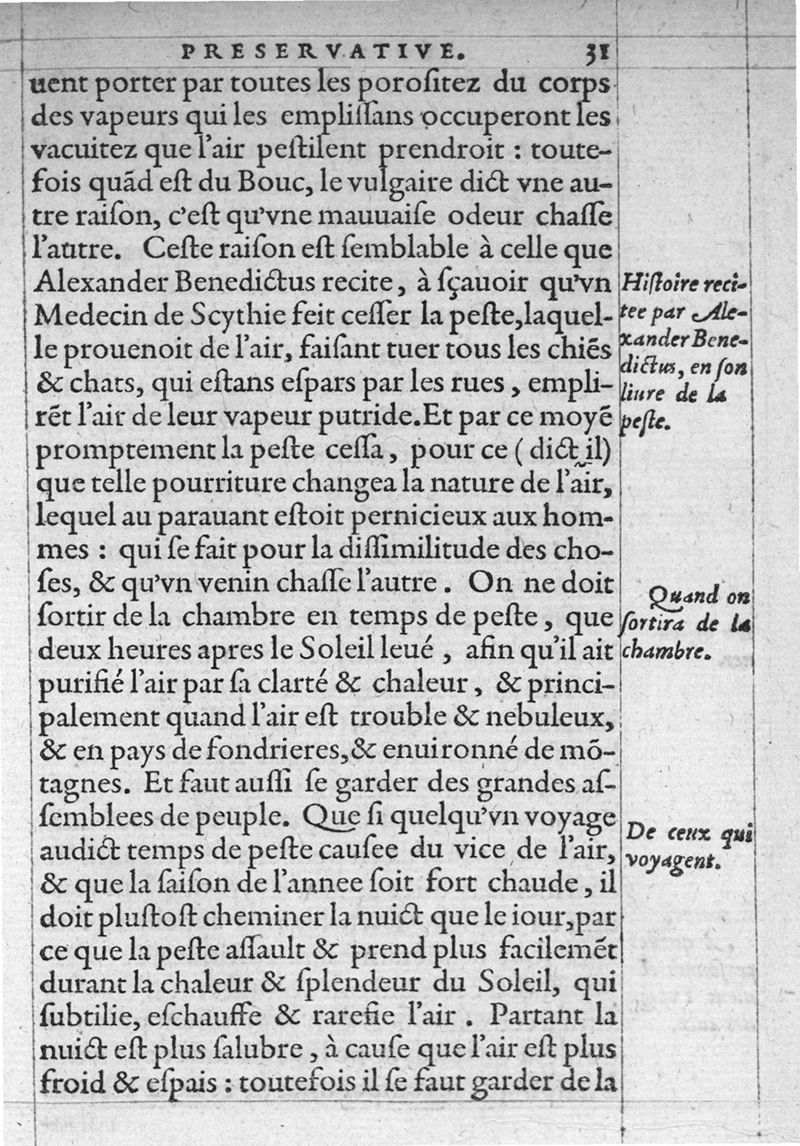 PRESERVATIVE. 31
uent porter par toutes les poroſitez du corps
des vapeurs qui les empliſſans occuperont les
vacuitez que l'air peſtilent prendroit : toute-
fois quãd eſt du Bouc, le vulgaire dict vne au-
tre raiſon, c'eſt qu'vne mauuaiſe odeur chaſſe
l'autre. Ceſte raiſon eſt ſemblable à celle que
Alexander Benedictus recite, à ſçauoir qu'vn
Medecin de Scythie feit ceſſer la peſte, laquel-
le prouenoit de l'air, faiſant tuer tous les chiẽs
& chats, qui eſtans eſpars par les rues, empli-
rẽt l'air de leur vapeur putride. Et par ce moyẽ
promptement la peſte ceſſa, pour ce (dict il)
que telle pourriture changea la nature de l'air,
lequel au parauant eſtoit pernicieux aux hom-
mes : qui ſe fait pour la diſſimilitude des cho-
ſes, & qu'vn venin chaſſe l'autre. On ne doit
ſortir de la chambre en temps de peſte, que
deux heures apres le Soleil leué, afin qu'il ait
purifié l'air par ſa clarté & chaleur, & princi-
palement quand l'air eſt trouble & nebuleux,
& en pays de fondrieres, & enuironné de mõ-
tagnes. Et faut auſſi ſe garder des grandes aſ-
ſemblees de peuple. Que ſi quelqu'vn voyage
audict temps de peſte cauſee du vice de l'air,
& que la ſaiſon de l'annee ſoit fort chaude, il
doit pluſtoſt cheminer la nuict que le iour, par
ce que la peſte aſſault & prend plus facilemẽt
durant la chaleur & ſplendeur du Soleil, qui
ſubtilie, eſchauffe & rarefie l'air. Partant la
nuict eſt plus ſalubre, à cauſe que l'air eſt plus
froid & eſpais : toutefois il ſe faut garder de la
Hiſtoire reci-
tee par Ale-
xander Bene-
dictus, en ſon
liure de la
peſte.
Quand on
ſortira de la
chambre.
De ceux qui
voyagent.